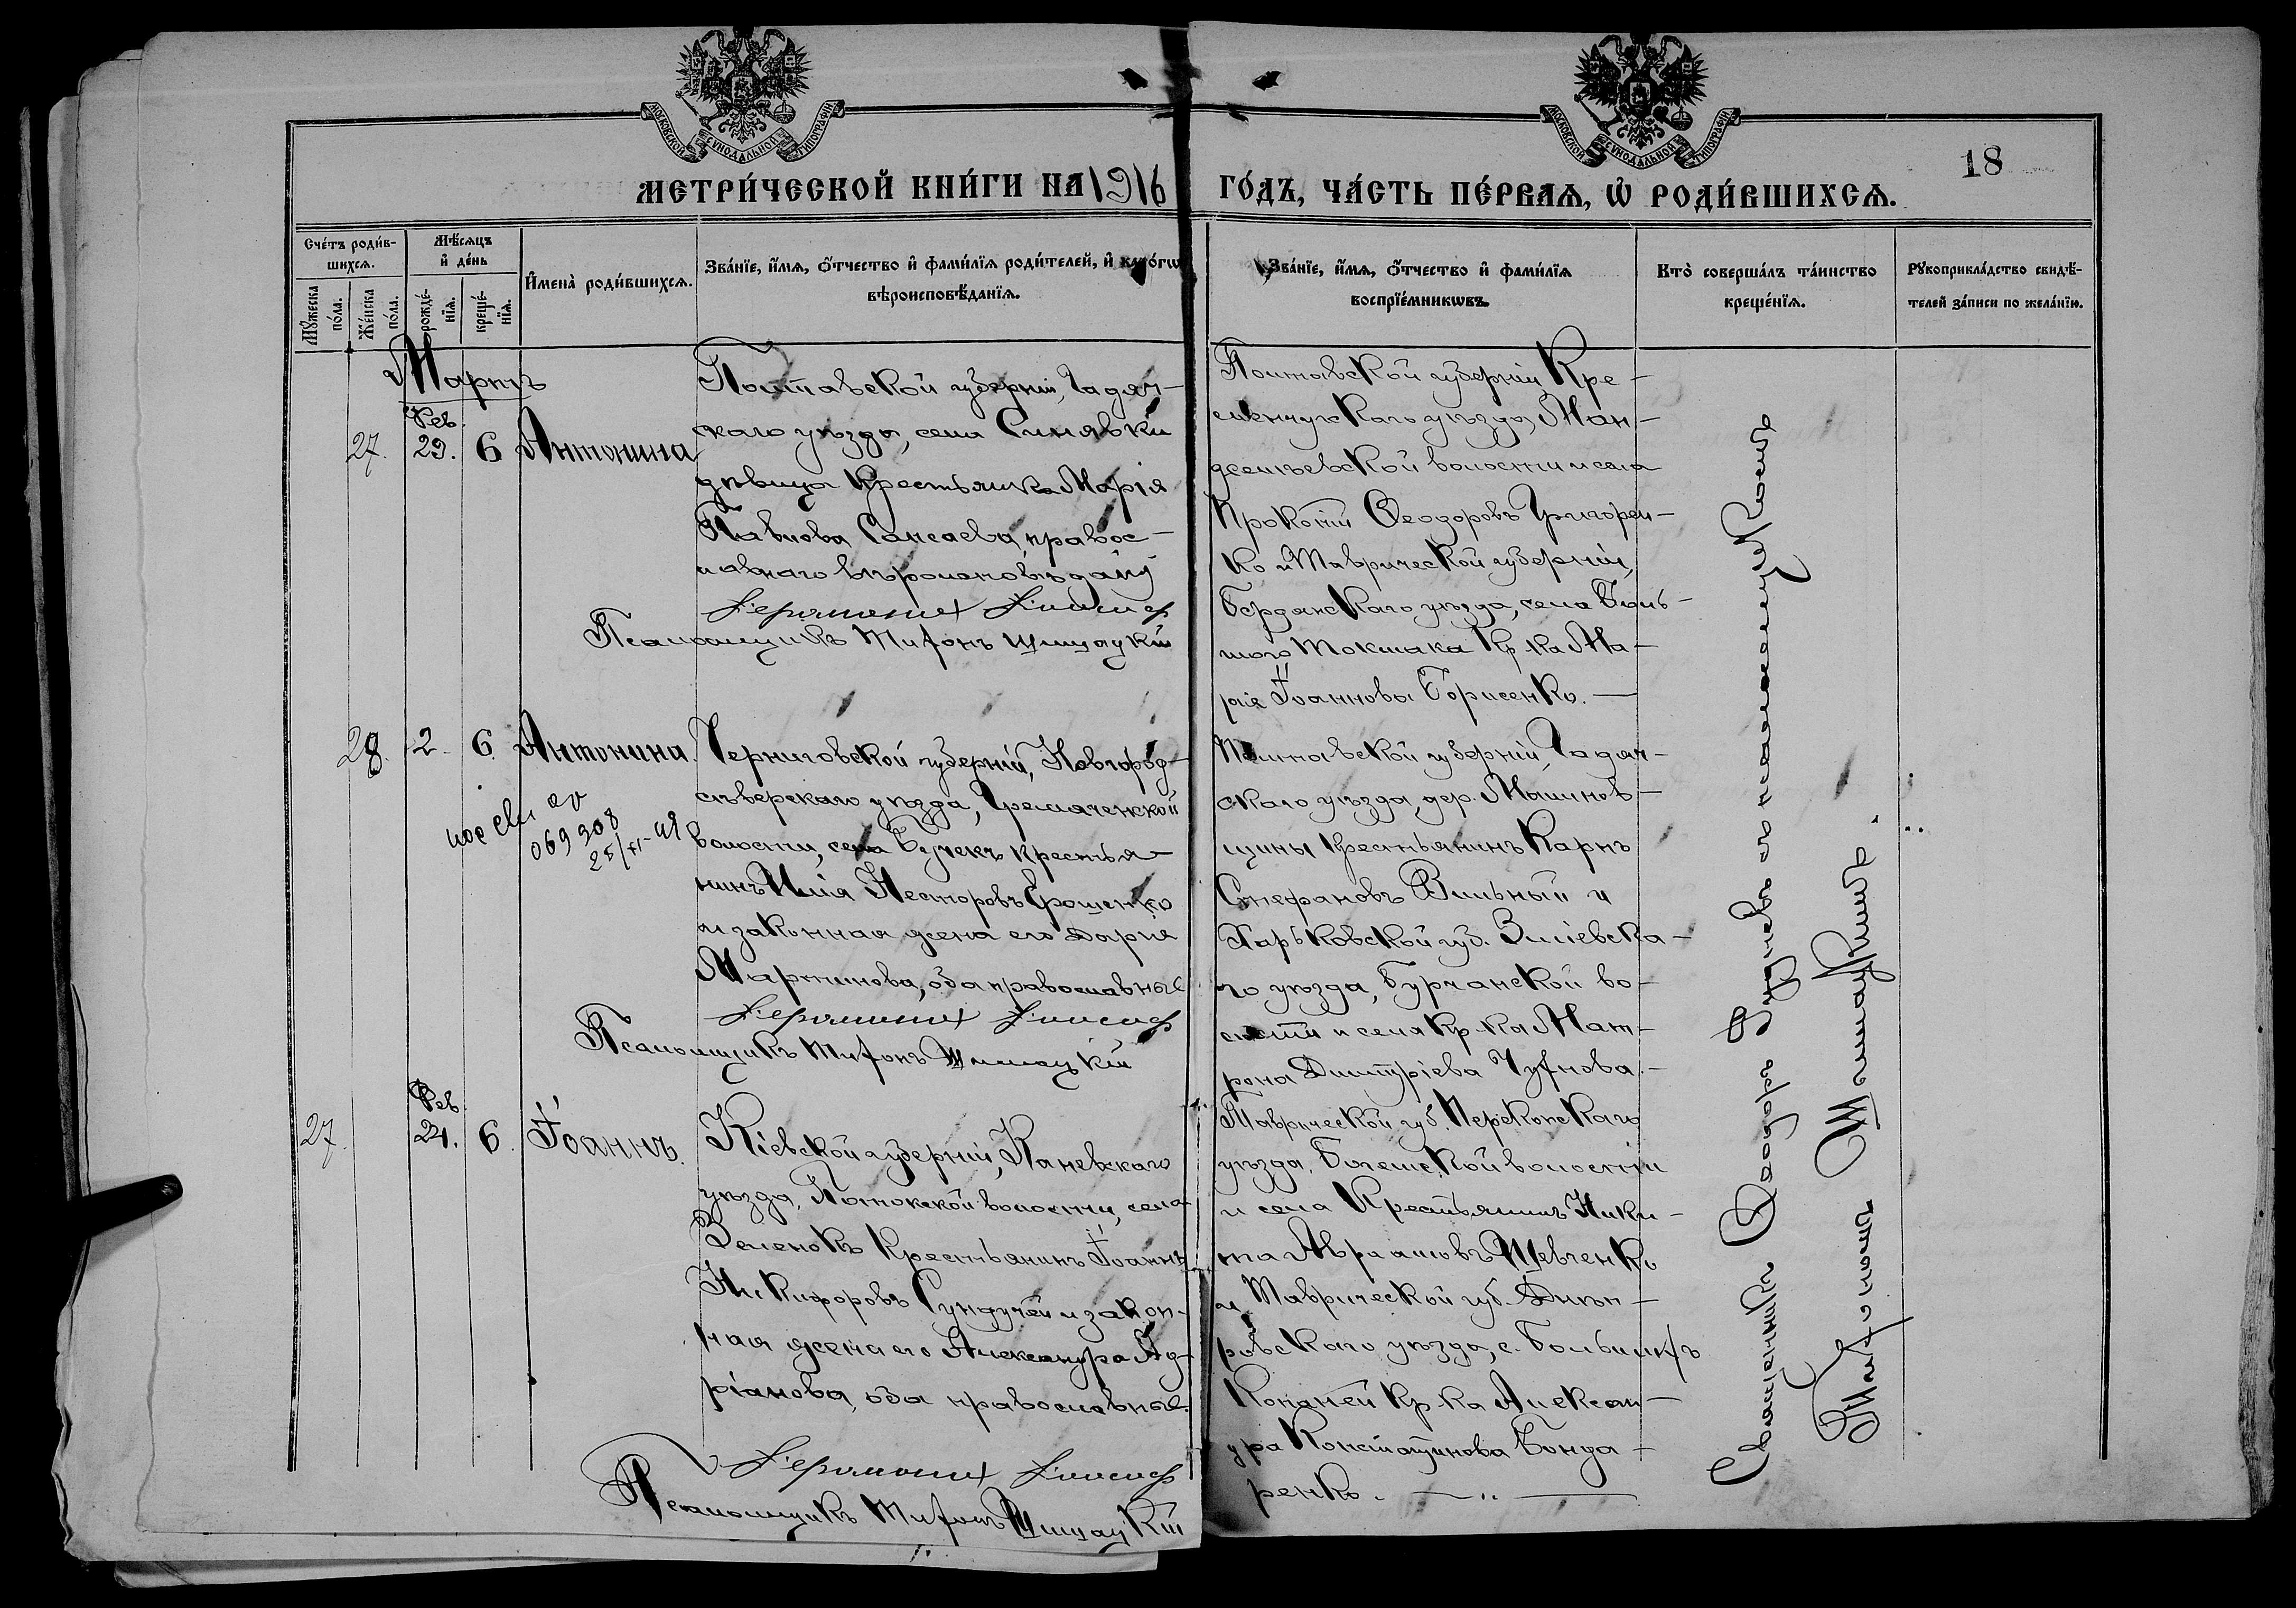 МОСКОВСКОЙ СѴНОДАЛЬНОЙ ТИПОГРАФІИ
МОСКОВСКОЙ СѴНОДАЛЬНОЙ ТИПОГРАФІИ
18
МЕТРИ́ЧЕСКОЙ КНИ́ГИ НА 1916 ГО́ДЪ, ЧА́СТЬ ПЕ́РВАѦ, Ѡ҆ РОДИ́ВШИХСѦ.
Сче́тъ роди́в-
шихсѧ.
Мѣ́сѧцъ
и҆ де́нь
И҆мена̀ роди́вшихсѧ.
Зва́нїе, и҆́мѧ, ѻ҆́тчество и҆ фами́лїѧ роди́телей, и҆ како́гѡ
вѣроисповѣ́данїѧ.
Зва́нїе, и҆́мѧ, ѻ҆́тчество и҆ фами́лїѧ
воспрїе́мникѡвъ.
Кто̀ соверша́лъ та́инство
креще́нїѧ.
Рꙋкоприкла́дство свидѣ́-
телей за́писи по жела́нїю.
Мꙋ́жеска
по́ла.
Же́нска
по́ла.
рожде́-
нїѧ.
креще́-
нїѧ.
Мартъ
27. Фев. 29. 6 Антонина
Полтавской губерніи, Гадяч-
скаго уѣзда, села Синявки
дѣвица крестьянка Марія
Павлова, право-
славнаго вѣроисповѣданія
Іеромонах
Псаломщикъ Тихонъ Шишацкій
Полтавской губерніи Кре-
менчугскаго уѣзда, Ман-
джелѣевской волости и села
Прокопій Ѳеодоровъ Григорен-
ко и Таврической губерніи,
Бердянскаго уѣзда, села Боль-
шого Токмака кр-ка Ма-
рія Іоаннова Борисенко.
28. 2. 6 Антонина.
069908
Черниговской губерніи, Новгород-
сѣверскаго уѣзда, Гремяченской
волости, села крестья-
нинъ Илія Несторовъ Ерошенко
и законная жена его Дарія
Мартинова, оба православные
Іеромонах
Псаломщикъ Тихонъ Шишацкій
Полтавской губерніи, Гадяч-
скаго уѣзда, дер. Машинов-
щины крестьянинъ Карпъ
Стефановъ Вильный и
Харьковской губ. Зміевска-
го уѣзда, Бурчанской во-
лости и села кр-ка Мат-
рона Димитріева Чухнова.
27. Фев. 24. 6. Іоаннъ.
Кіевской губерніи, Каневскаго
уѣзда, Потокской волости, села
Зеленокъ крестьянинъ Іоаннъ
Никифоровъ Сундучей и закон-
ная жена его Александра Ад-
ріанова, оба православные.
Іеромонах
Псаломщикъ Тихонъ Шишацкій
Таврической губ. Перекопскаго
уѣзда, волости
и села крестьянинъ Ники-
та Авраамовъ Шевченко
и Таврической губ. Днѣп-
ровскаго уѣзда, с. Большихъ
Копаней кр-ка Алексан-
дра Константинова Бонда-
ренко.
Священникъ Ѳеодоръ съ псаломщикомъ
Тихономъ Шишацкимъ.